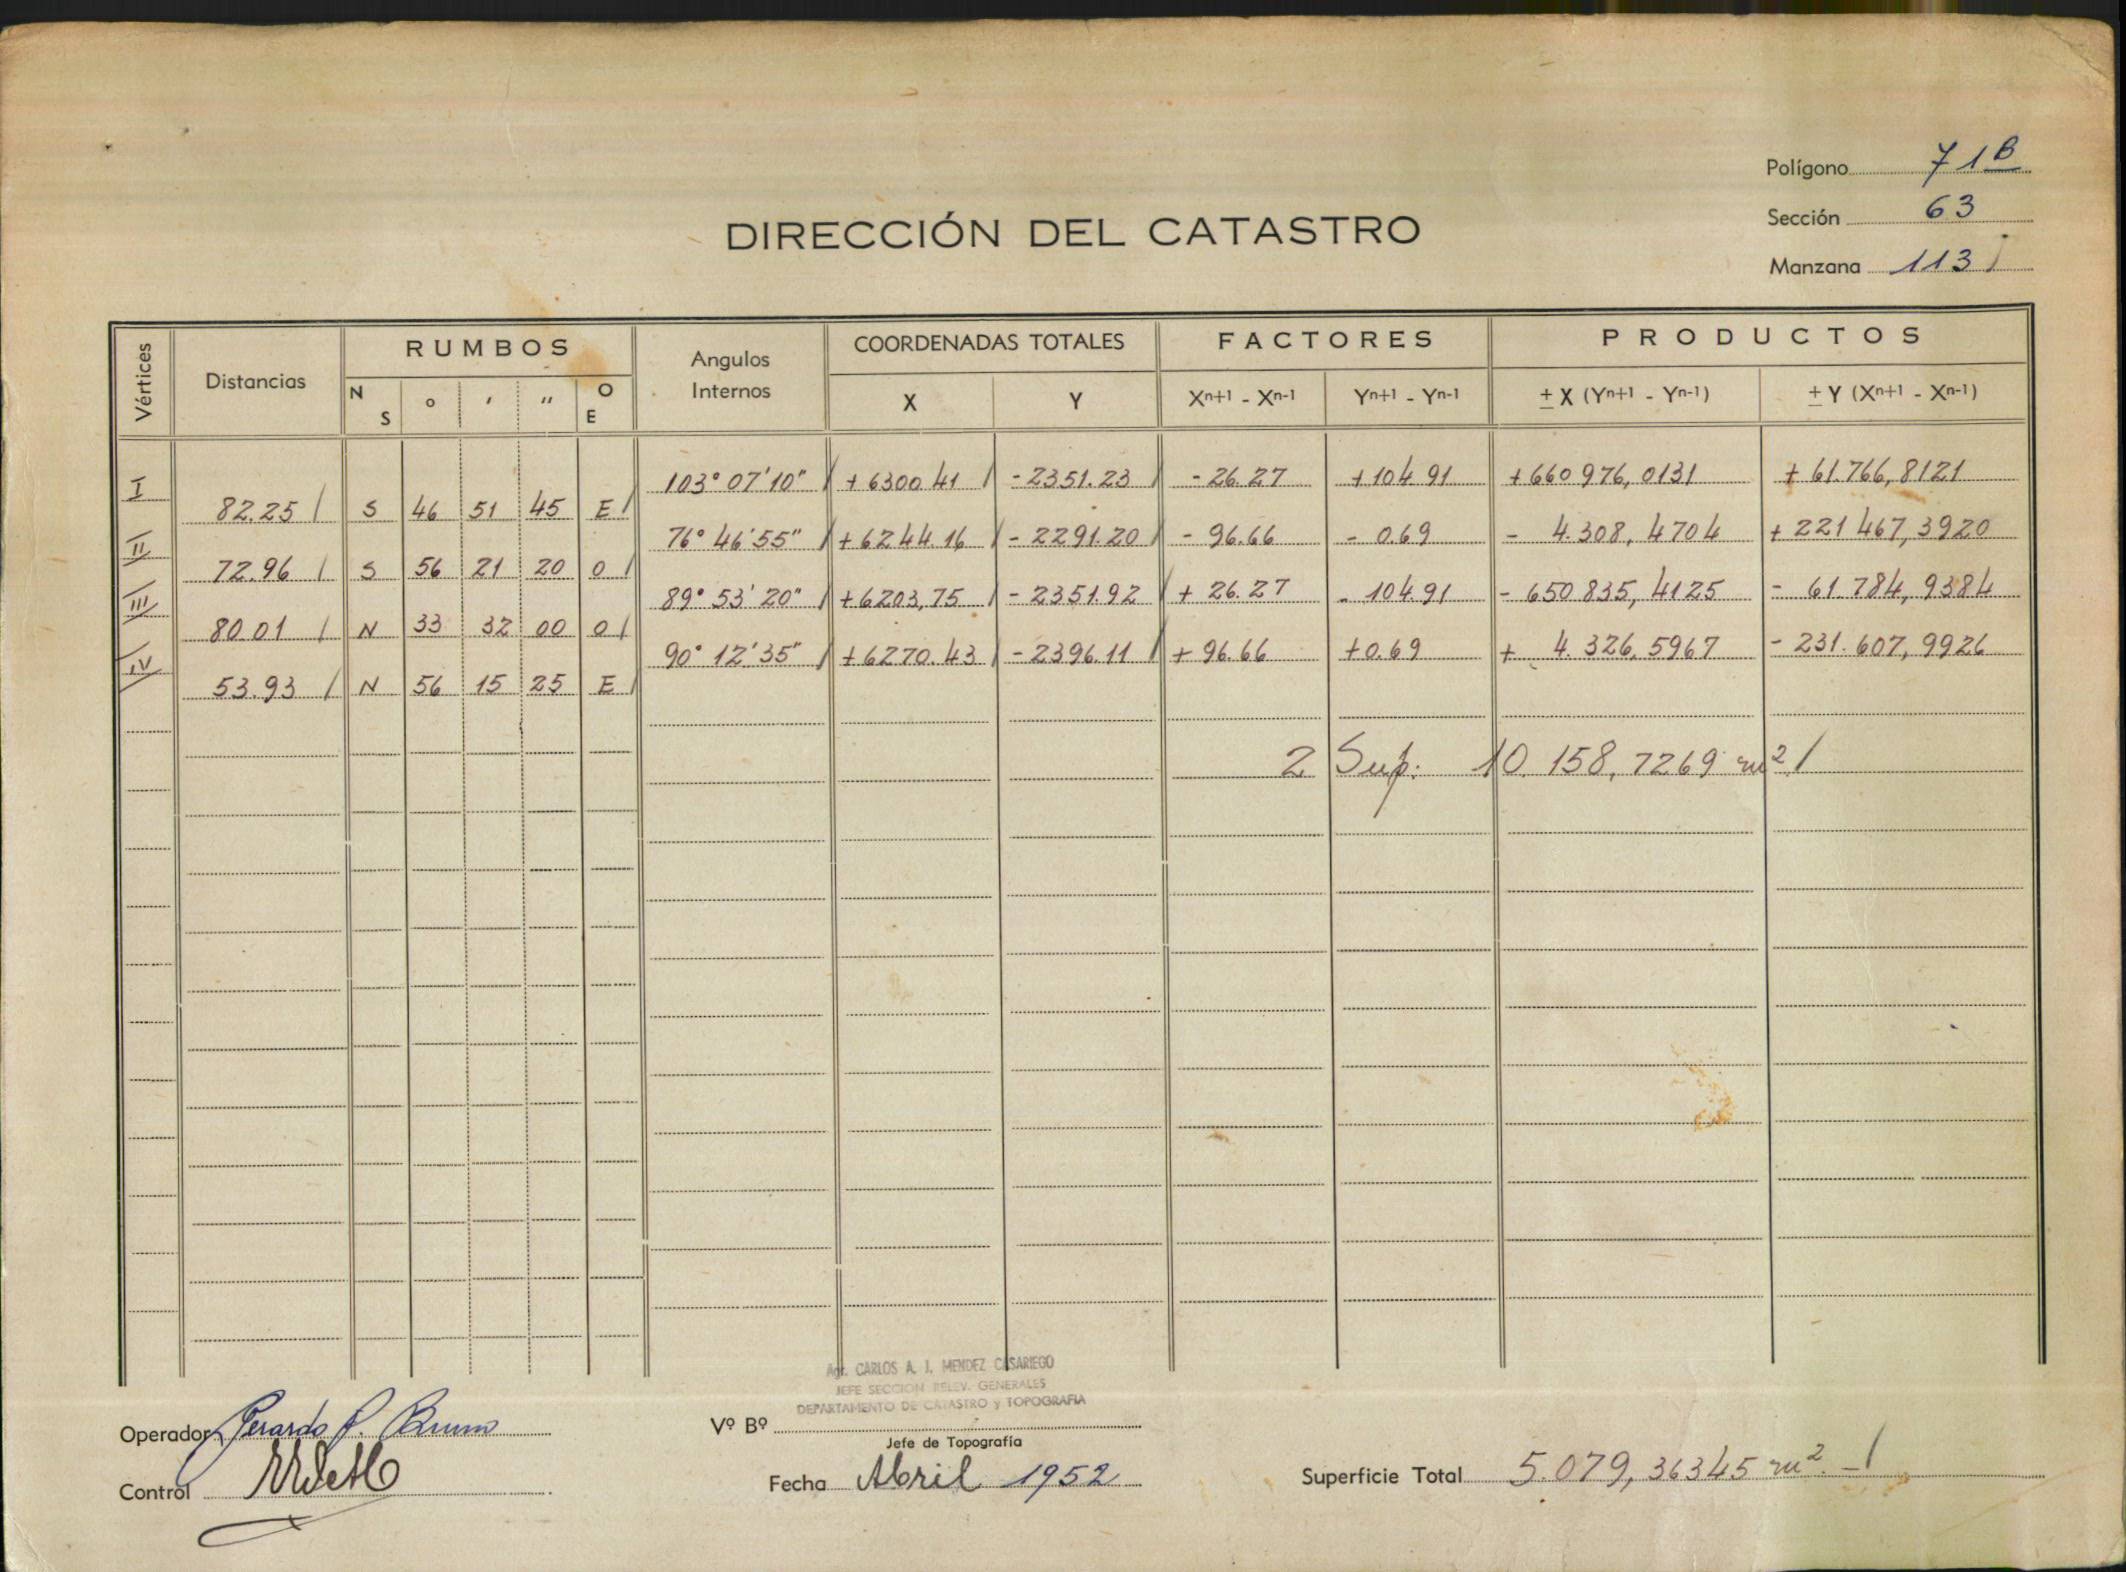 Polígono 71B
Sección 63
Manzana 113
DIRECCIÓN DEL CATASTRO
Vértices Distancias RUMBOS Angulos Internos COORDENADAS TOTALES FACTORES PRODUCTOS
N S ° ′ ″ O E X Y Xn+1 - Xn-1 Yn+1 - Yn-1 ± X (Yn+1 - Yn-1) ± Y (Xn+1 - Xn-1)
I 103° 07' 10" + 6300.41 - 2351.23 - 26.27 + 104.91 + 660 976, 0131 + 61.766, 8121
82.25 S 46 51 45 E
II 76° 46' 55" + 6244.16 - 2291.20 - 96.66 - 0.69 - 4.308, 4704 + 221 467, 3920
72.96 S 56 21 20 O
III 89° 53' 20" + 6203,75 - 2351.92 + 26.27 - 104.91 - 650 835, 4125 - 61.784, 9384
80.01 N 33 32 00 O
IV 90° 12' 35" + 6270.43 - 2396.11 + 96.66 + 0.69 + 4.326, 5967 - 231.607, 9926
53.93 N 56 15 25 E
2 Sup. 10.158, 7269 m2
Agr. CARLOS A. J. MENDEZ CASARIEGO
JEFE SECCION RELEV. GENERALES
DEPARTAMENTO DE CATASTRO y TOPOGRAFIA
Operador Gerardo P. Bruno Vº Bº
Jefe de Topografía
Control Fecha Abril 1952 Superficie Total 5.079, 36345 m2. -